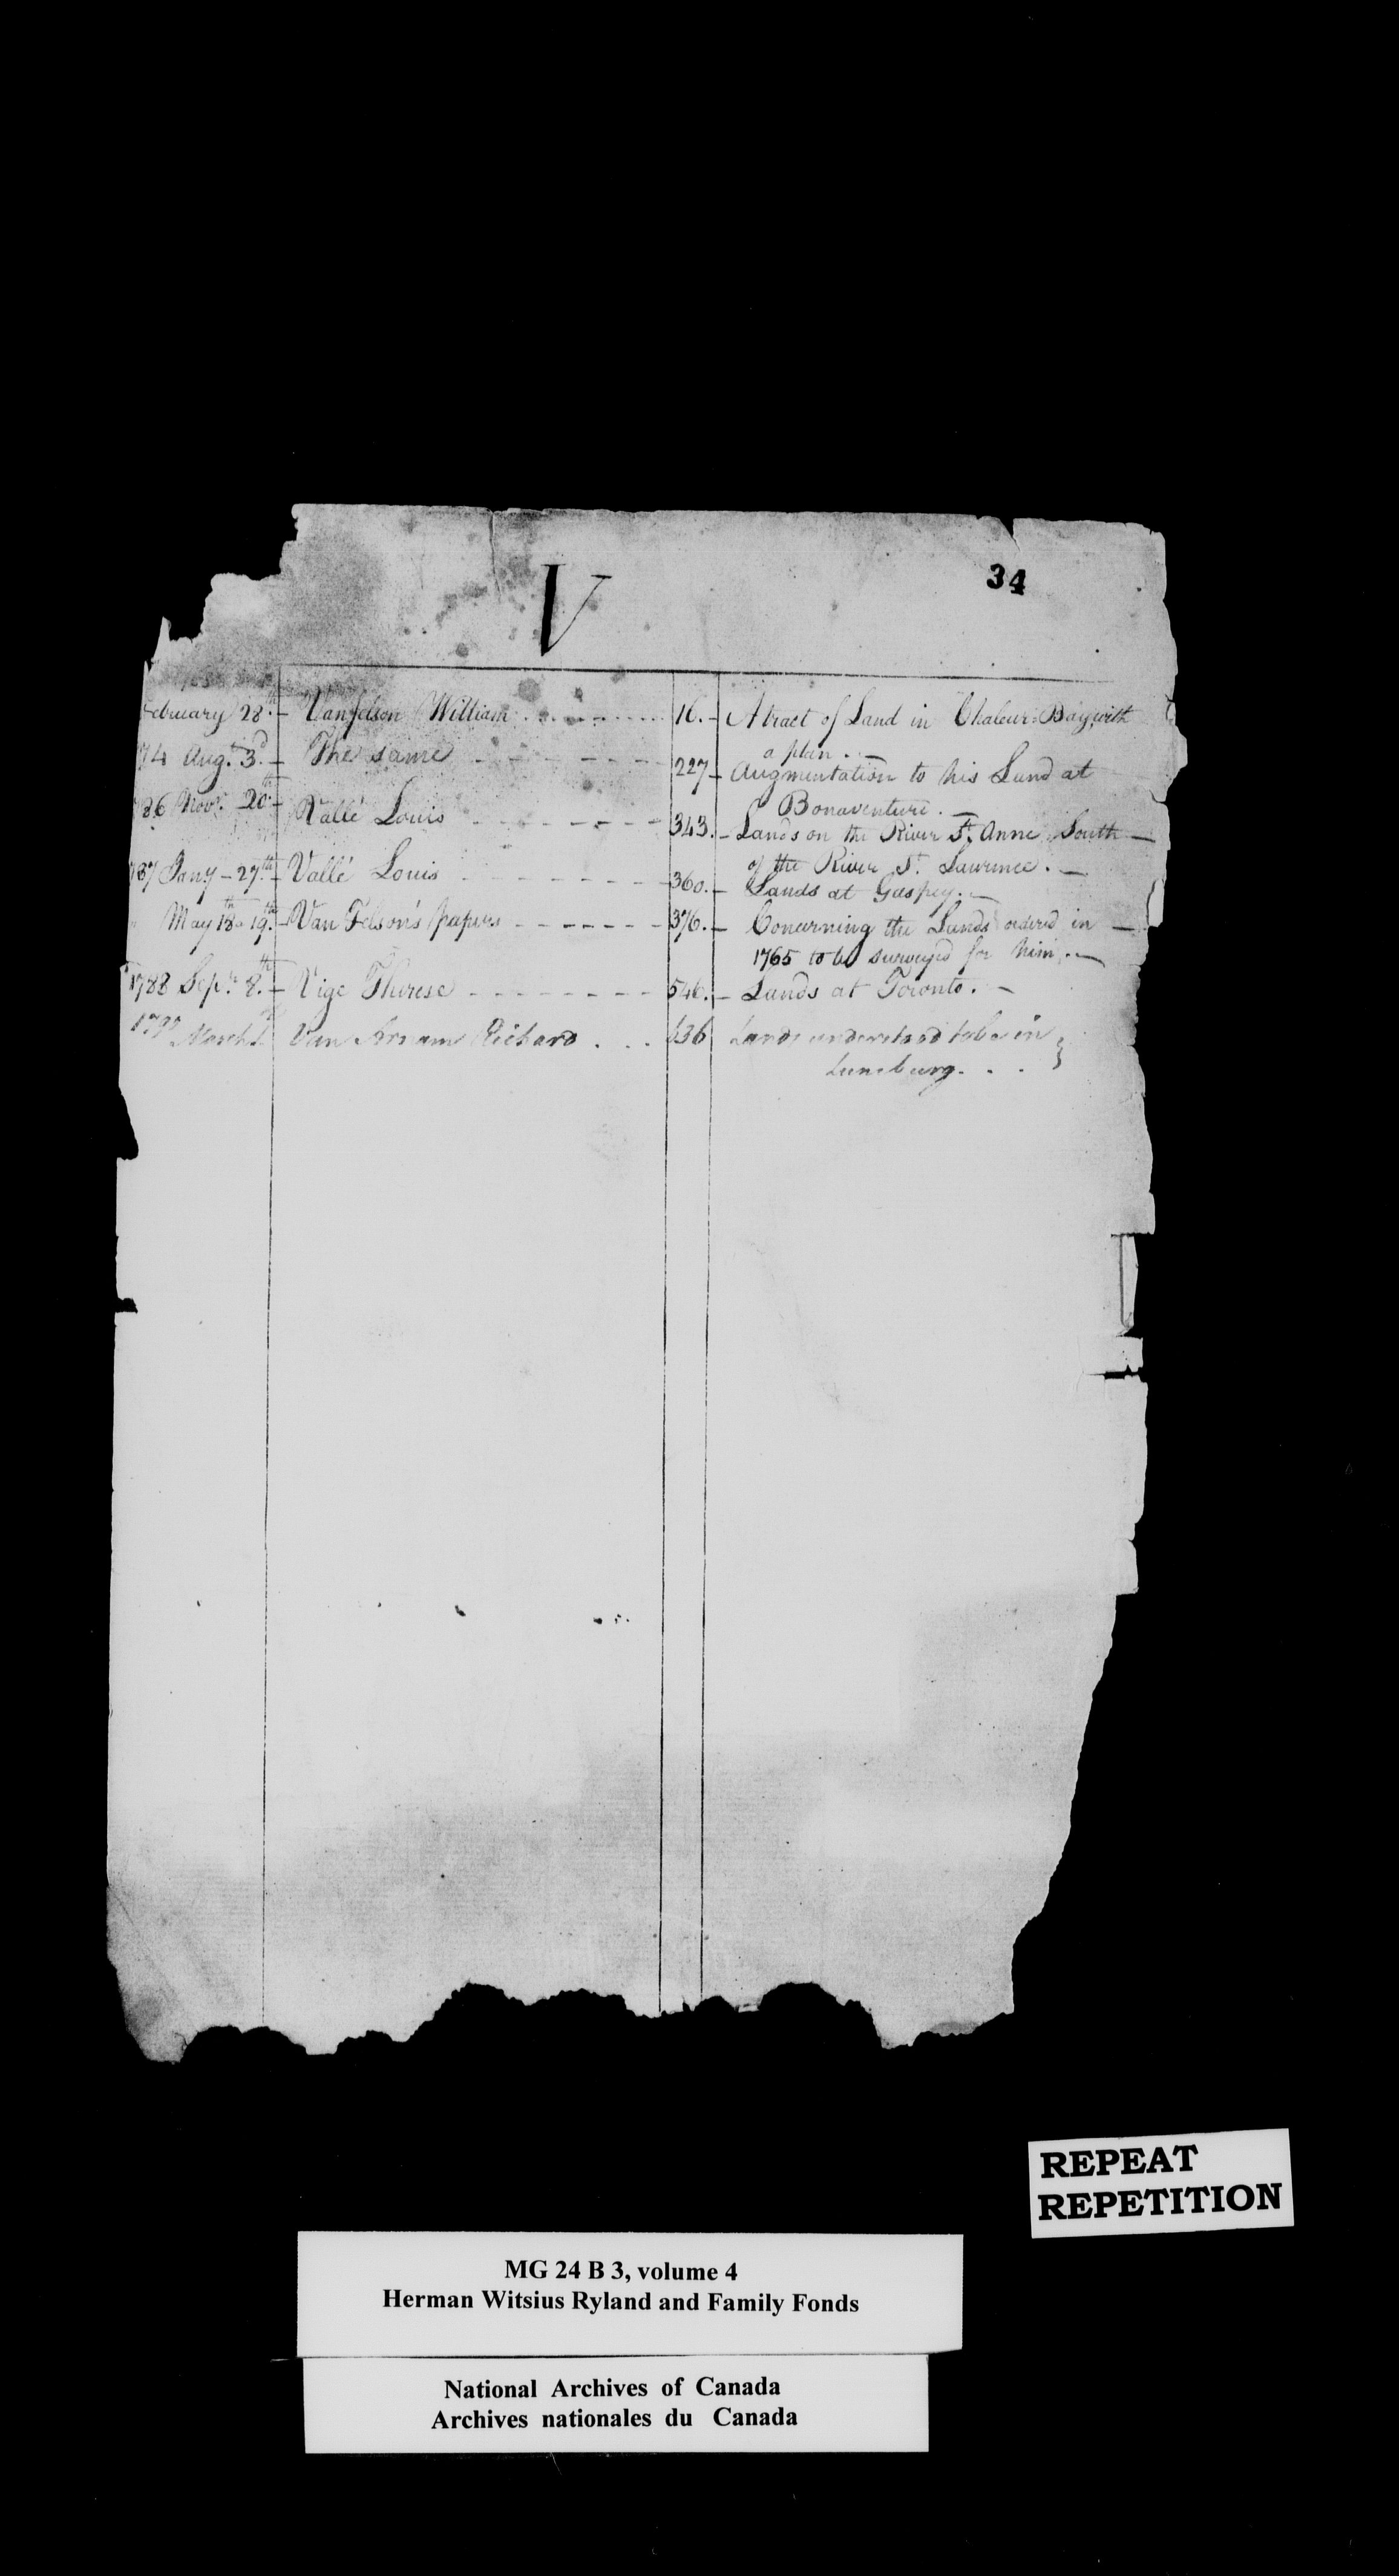 34
V
February 28th – Vanfelson William 16. – A tract of Land in Chaleur-Bay, with
a plan. –
74 Augt. 3d – The same 227 – Augmentation to his Land at
Bonaventure. –
86 Novr. 20th – Vallé Louis 343. – Lands on the River St. Anne South –
of the River St. Lawrence. –
87 Jany – 27th – Vallé Louis 360. – Lands at Gaspey. –
" May 18th & 19th – Van Felson's papers 376. – Concerning the Lands ordered in –
1765 to be surveyed for him. –
1788 Sepr. 8th – Vige Therese 546. – Lands at Toronto. –
1790 March 1 Van Arnam Richard . . . 636 Lands understood to be in
Luneburg. . . }
REPEAT
REPETITION
MG 24 B 3, volume 4
Herman Witsius Ryland and Family Fonds
National Archives of Canada
Archives nationales du Canada